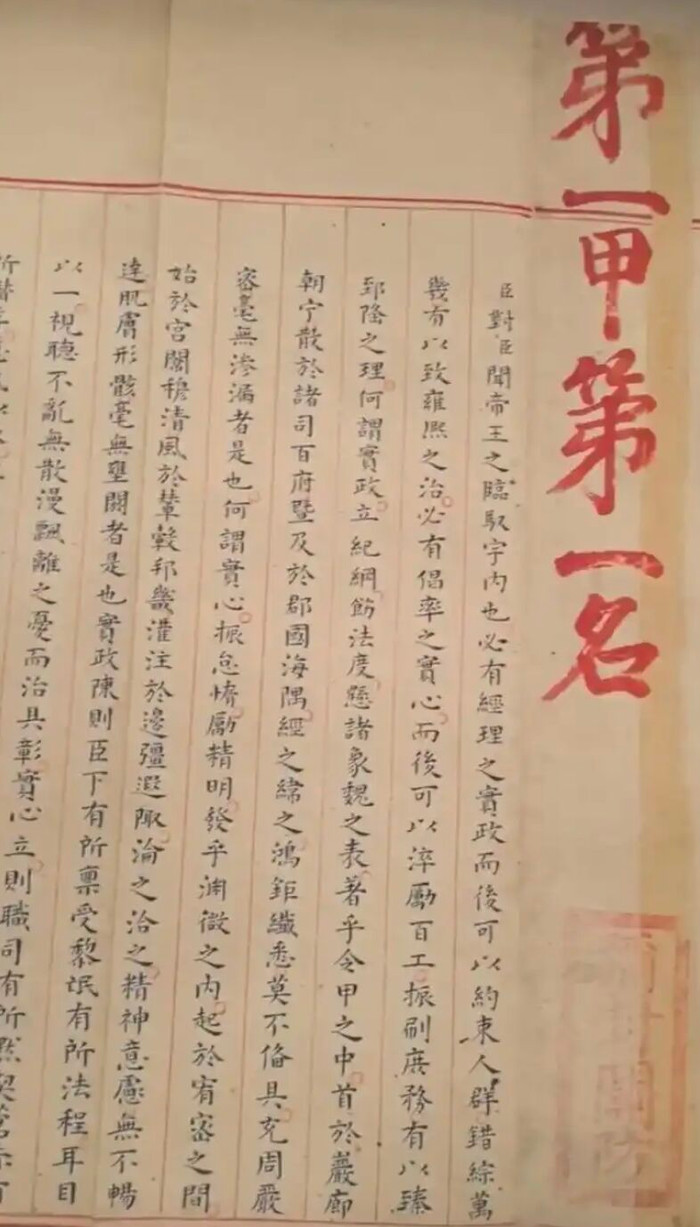 第一甲第一名
臣對臣聞帝王之臨馭宇内也必有經理之實政而後可以約束人群錯綜萬
幾有以致雍熙之治必有倡率之實心而後可以淬勵百工振刷庶務有以臻
郅隆之理何謂實政立紀綱飭法度懸諸象魏之表著乎令甲之中首於巖廊
朝宁散於諸司百府暨及於郡國海隅經之緯之鴻鉅纖悉莫不俻具充周嚴
密毫無滲漏者是也何謂實心振怠惰勵精明發乎淵微之内起於宥密之間
始於宮闈穆清風於輦轂邦畿灌注於邊彊遐陬淪之洽之精神意慮無不暢
達肌膚形骸毫無壅閼者是也實政陳則臣下有所禀受黎氓有所法程耳目
以一視聽不亂無散漫飄離之憂而治具彰實心立則職司有所